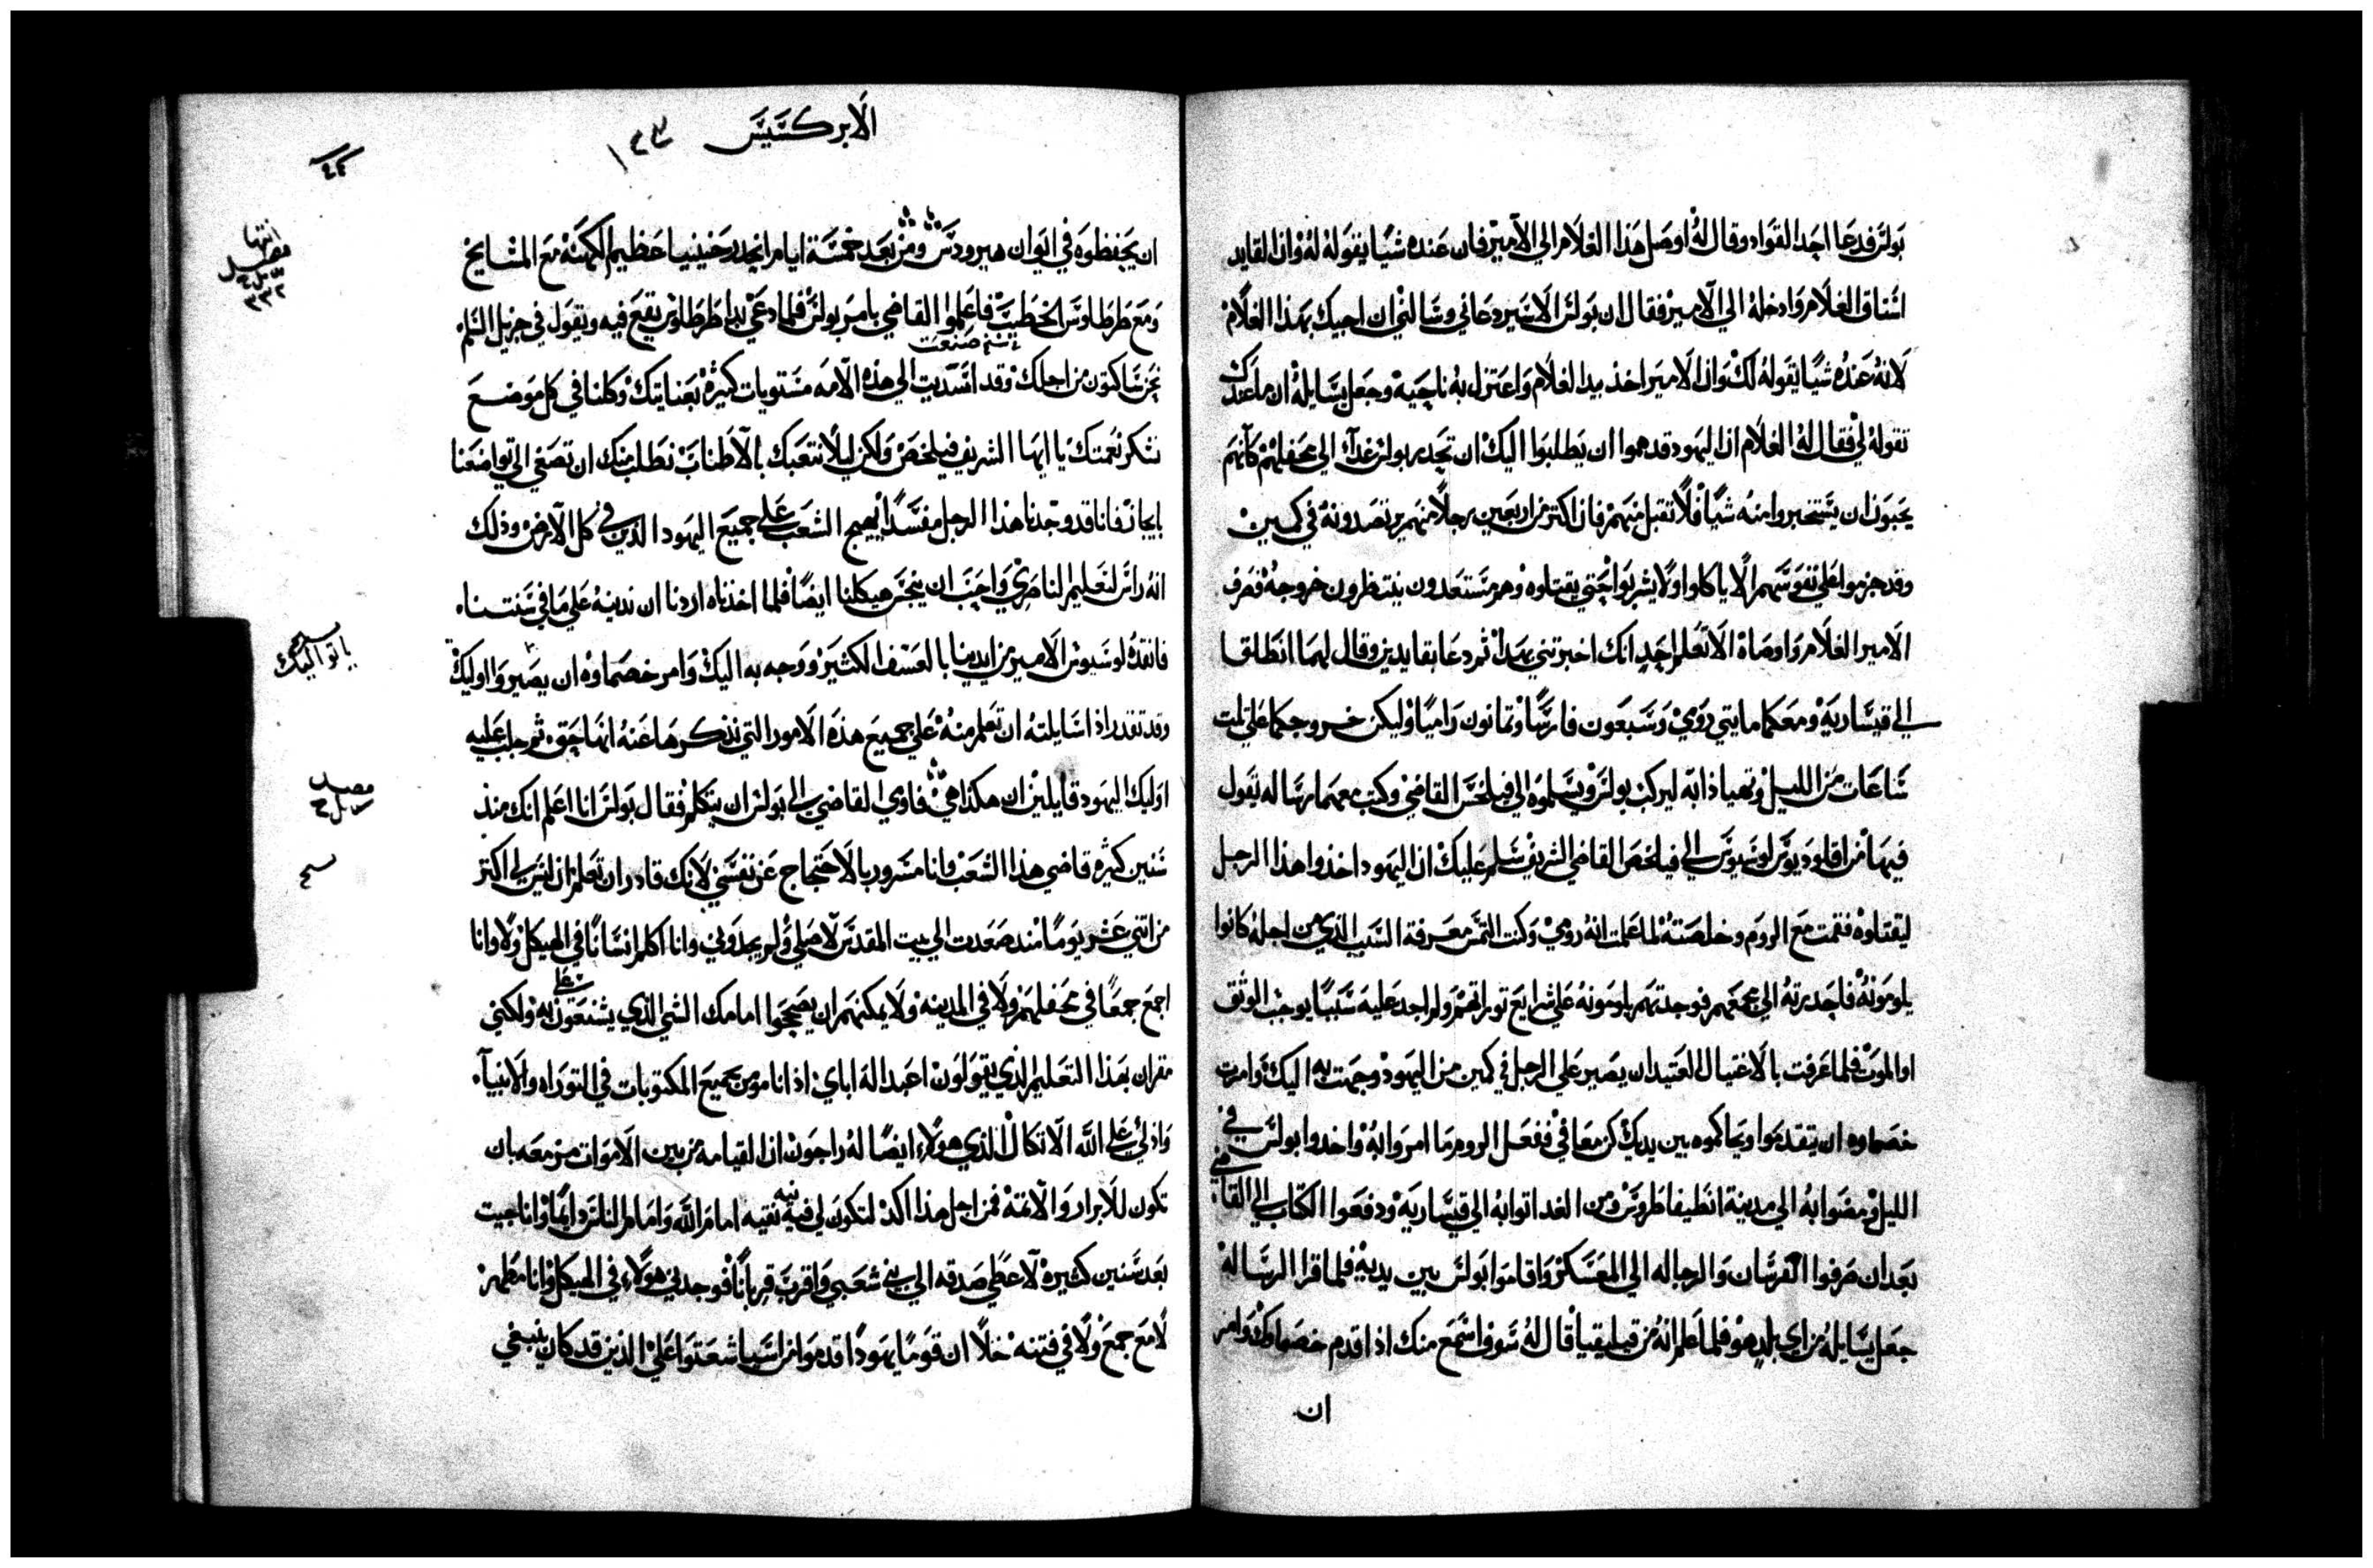 بولس فدعا احد القواد وقال له اوصل هذا الغلام الي الامير فان عنده شيا يقوله له وان القايد
استاق الغلام وادخله الي الامير فقال ان بولس الاسير دعاني وسالني ان اجيك بهذا الغلام
لانه عنده شيا يقوله لك وان الامير اخذ بيد الغلام واعتزل به ناحية وجعل يسايله ان ما عندك
تقوله لي فقال له الغلام ان اليهود قد هموا ان يطلبوا اليك ان تحدر بولس غدا الي محفلهم كانهم
يحبون ان يستخبروا منه شيا فلا تقبل منهم فان اكتر من اربعين رجلا منهم يرتصدونه في كمين
وقد حزموا علي نفوسهم الا ياكلوا ولا يشربوا حتي يقتلوه وهم مستعدون ينتظرون خروجه فصرف
الامير الغلام واوصاه الا تعلم احد انك اخبرتني بهذا ثم دعا بقايدين وقال لهما انطلقا
الي قيسارية ومعكما مايتي رومي وسبعون فارسا وتمانون راميا وليكن خروجكما علي تلت
ساعات من الليل وتهيا دابه ليركب بولس ويسلموه الي فيلخس القاضي وكتب معهما رساله يقول
فيها من اقلوديوس لوسيوس الي فيلخس القاضي الشريف سلم عليك ان اليهود اخذوا هذا الرجل
ليقتلوه فقمت مع الروم وخلصته لما علمت انه رومي وكنت التمس معرفة السبب الذي من اجله كانوا
يلومونه فاحدرته الي مجمعهم فوجدتهم يلومونه علي شرايع توراتهم ولم اجد عليه سببا يوجب الوثق
او الموت فلما عرفت بالاغتيال العتيد ان يصير علي الرجل في كمين من اليهود وجهت به اليك وامرت
خصماوه ان يتقدموا ويحاكموه بين يديك كن معافي ففعل الروم ما امروا به واخدوا بولس في
الليل ومضوا به الي مدينة انطيفاطروس ومن الغد اتوا به الي قيسارية ودفعوا الكتاب الي القاضي
بعد ان صرفوا الفرسان والرجاله الي المعسكر واقاموا بولس بين يديه فلما قرا الرساله
جعل يسايله من اي بلد هو فلما علم انه من قيليقيا قال له سوف اسمع منك اذا قدم خصماوك وامر
ان
الابركسيس ١٣٣
٤٢
ان يحفظوه في ايوان هيرودس ومن بعد خمسة ايام انحدر حنينيا عظيم الكهنة مع المشايخ
ومع طرطلوس الخطيب فاعلموا القاضي بامر بولس فلما دعي بدا طرطلوس يقع فيه ويقول في جزيل السلم
نسخ صنعت
نحن ساكنون من اجلك وقد اسديت الي هذه الامه مستويات كثيره بعنايتك وكلنا في كل موضع
نشكر نعمتك يا ايها الشريف فيلخس ولكن ليلا نتعبك بالاطناب نطلب منك ان تصغي الي تواضعنا
بايجاز فانا قد وجدنا هذا الرجل مفسدا يهيج الشعب علي جميع اليهود الذين في كل الارض وذلك
انه راس لتعليم الناصري واحب ان ينجس هيكلنا ايضا فلما اخذناه اردنا ان ندينه علي ما في سنتنا
فانقذه لوسيوس الامير من ايدينا بالعسف الكثير ووجه به اليك وامر خصماوه ان يصيروا اليك
وقد تقدر اذا سايلته ان تعلم منه علي جميع هذه الامور التي نذكرها عنه انها حق ثم جلب عليه
اوليك اليهود قايلين ان هكذا هي فاوي القاضي الي بولس ان يتكلم فقال بولس انا اعلم انك منذ
سنين كثيره قاضي هذا الشعب وانا مسرور بالاحتجاج عن نفسي لانك قادر ان تعلم ان ليس لي اكتر
من اتني عشر يوما منذ صعدت الي بيت المقدس لاصلي ولم يجدوني وانا اكلم انسانا في الهيكل ولا وانا
اجمع جمعا في محفلهم ولا في المدينه ولا يمكنهم ان يصححوا امامك الشي الذي يشنعون به علي ولكني
مقر ان بهذا التعليم الذي يقولون اعبد اله اباي اذ انا مومن بجميع المكتوبات في التوراه والانبيآ
واذ لي علي الله الاتكال الذي هولاء ايضا له راجون ان القيامه من بين الاموات مزمعه بان
تكون للابرار والاتمة فمن اجل هذا اكد لتكون لي نيه نقيه امام الله وامام الناس دايما وانا جيت
بعد سنين كثيرة لاعطي صدقه الي بني شعبي واقرب قربانا فوجدني هولاء في الهيكل وانا مطهر
لا مع جمع ولا في فتنه خلا ان قوما يهودا قدموا من اسيا شعتوا علي الذين قد كان ينبغي
انتها
٣٣٢
ياتوا اليك